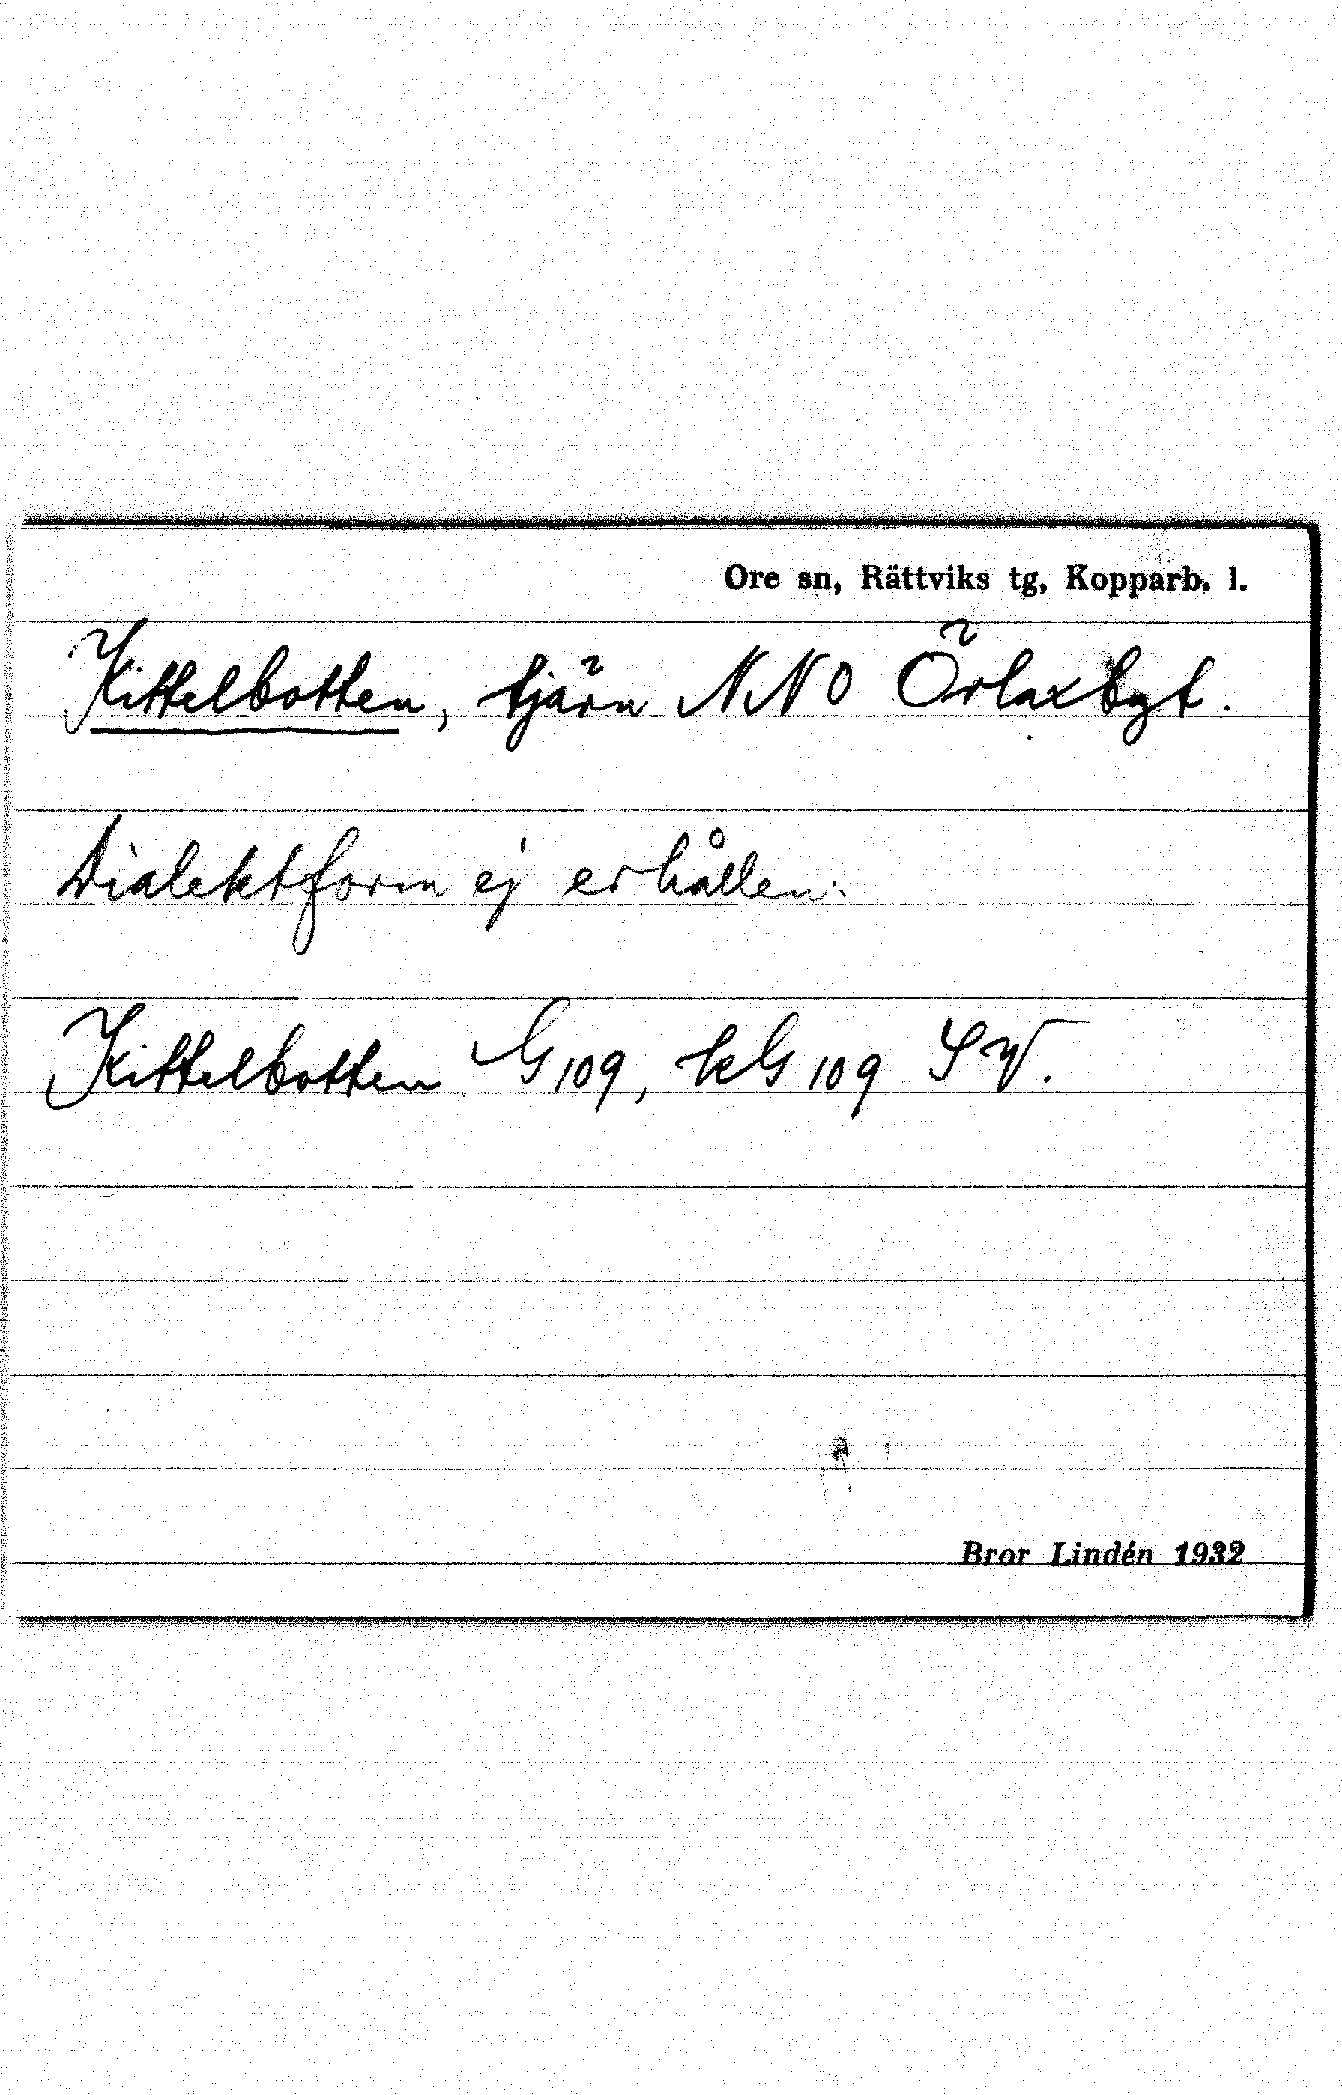 Ore sn, Rättviks tg, Kopparb. l.
Kittelbotten, tjärn NNO Örlaxbgt.
Dialektform ej erhållen.
Kittelbotten G 109, kG 109 SV.
Bror Lindén 1932